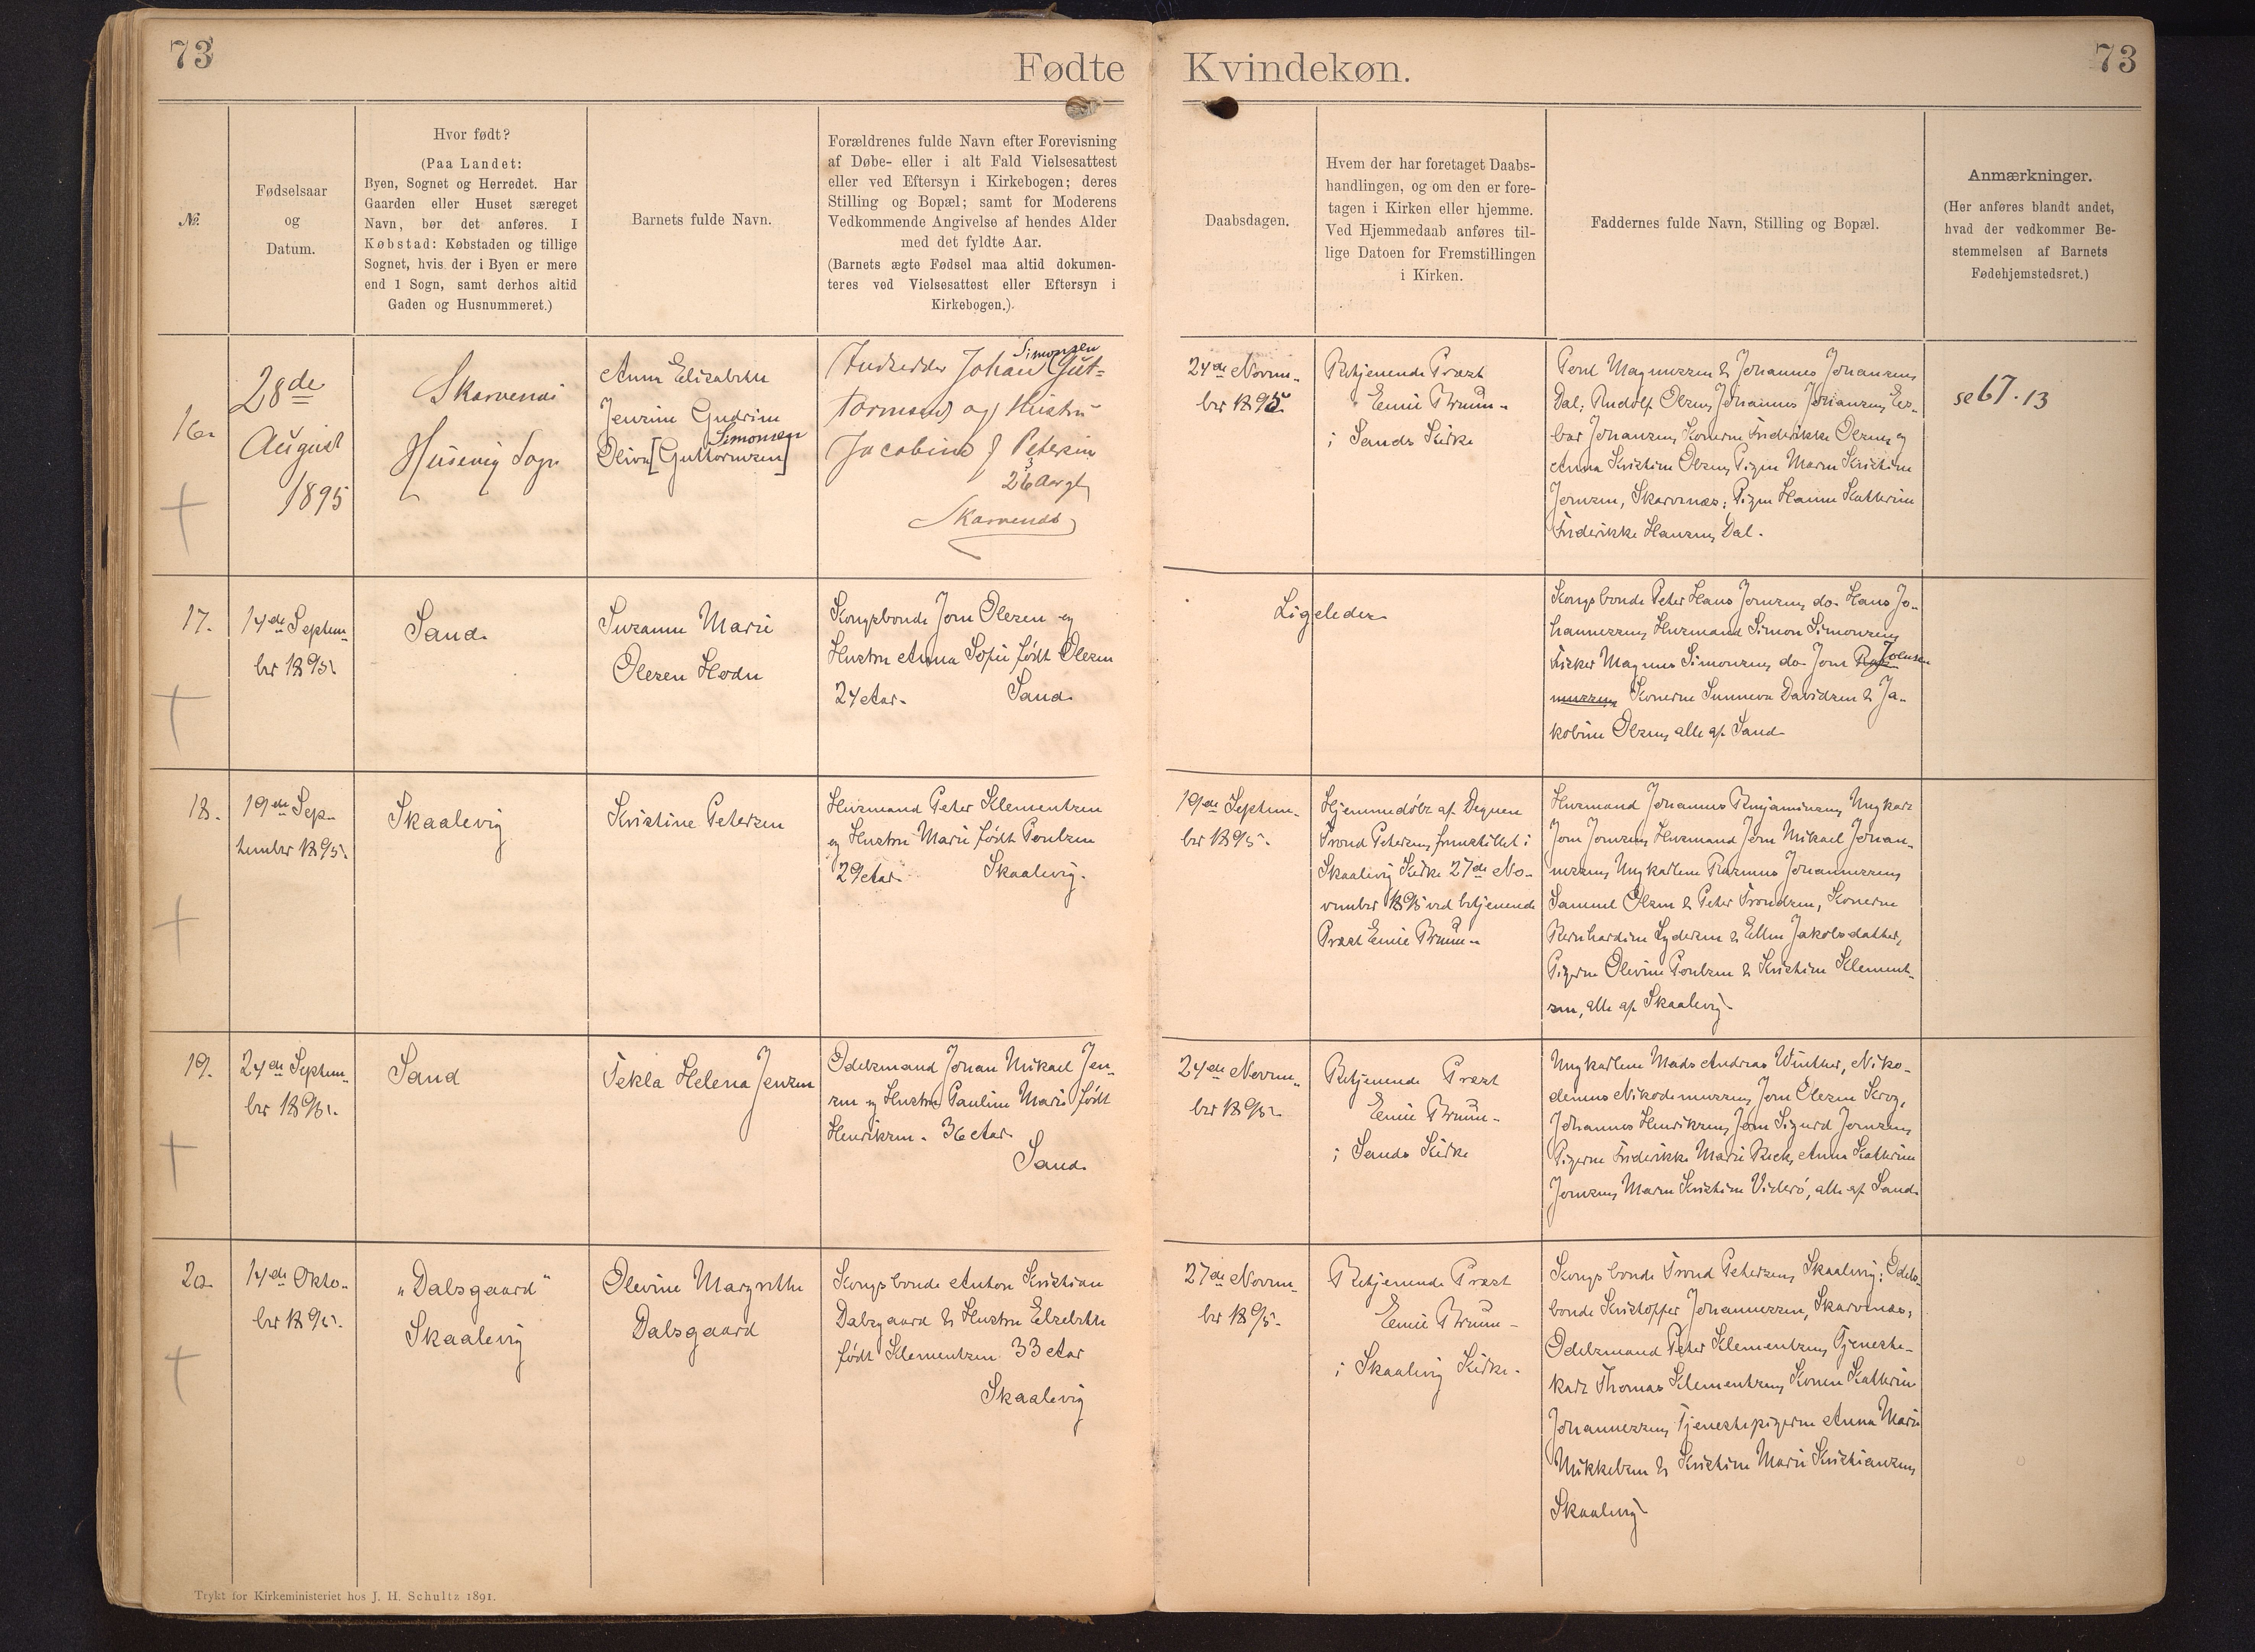 73
Fødte
Kvindekøn.
73
№.
Fødselsaar
og
Datum.
Hvor født?
(Paa Landet:
Byen, Sognet og Herredet. Har
Gaarden eller Huset særeget
Navn, bør det anføres. I
Købstad: Købstaden og tillige
Sognet, hvis der i Byen er mere
end 1 Sogn, samt derhos altid
Gaden og Husnummeret.)
Barnets fulde Navn.
Forældrenes fulde Navn efter Forevisning
af Døbe- eller i alt Fald Vielsesattest
eller ved Eftersyn i Kirkebogen; deres
Stilling og Bopæl; samt for Moderens
Vedkommende Angivelse af hendes Alder
med det fyldte Aar.
(Barnets ægte Fødsel maa altid dokumen-
teres ved Vielsesattest eller Eftersyn i
Kirkebogen.)
Daabsdagen.
Hvem der har foretaget Daabs-
handlingen, og om den er fore-
tagen i Kirken eller hjemme.
Ved Hjemmedaab anføres til-
lige Datoen for Fremstillingen
i Kirken.
Faddernes fulde Navn, Stilling og Bopæl.
Anmærkninger.
(Her anføres blandt andet,
hvad der vedkommer Be-
stemmelsen af Barnets
Fødehjemstedsret.)
16.
28de
August
1895
Skarvenæs
Husevig Sogn
Anna Elisabeth
Jensine Gudrine
Simonsen
Oliva [Guttormsen]
Simonsen
Johan Gut-
tormsen og Hustru
Jacobine f Petersen
26 Aar gl
Skarvenæs
24de Novem-
ber 1895.
Betjenende Præst
Emil Bruun-
i Sands Kirke
Poul Magnussen & Johannes Johansen,
Dal; Rudolf Olsen, Johannes Johansen,
Johansen, Konerne Frederikke Olsen og
Anna Kristine Olsen, Pigen Maren Kristine
Joensen, Skarvenæs; Pigen Hanne Kathrine
Frederikke Hansen, Dal.
se 67.13
17.
14de Septem-
ber 1895.
Sand.
Susanne Marie
Olesen Hedn
Kongsbonde Joen Olesen og
Hustru Anna Sofie født Olesen
24 Aar. Sand.
Ligeledes
Kongsbonde Peter Hans Joensen, do. Hans Jo-
hannessen, Husmand Simon Simonsen,
Fisker Magnus Simonsen, do. Joen Ras- Joensen
mussen, Konerne Sunneva Davidsen & Ja-
kobine Olsen, alle af Sand.
18.
19de Sep-
tember 1895.
Skaalevig
Kristine Petersen
Husmand Peter Klementsen
og Hustru Marie født Poulsen
29 Aar. Skaalevig.
19de Septem-
ber 1895.
Hjemmedøbt af Degnen
Trond Petersen, fremstillet i
Skaalevig Kirke 27de No-
vember 1895 ved betjenende
Præst Emil Bruun-
Husmand Johannes Benjaminsen, Ungkarl
Joen Joensen, Husmand Joen Mikael Johan-
nessen, Ungkarlene Rasmus Johannessen,
Samuel Olsen & Peter Trondsen, Konerne
Bernhardine Lydersen & Ellen Jakobsdatter,
Pigerne Olevine Poulsen & Kristine Klement-
sen, alle af Skaalevig.
19.
24de Septem-
ber 1895.
Sand
Tekla Helena Jensen
Odelsmand Johan Mikael Jen-
sen og Hustru Pauline Marie født
Henriksen. 36 Aar.
Sand.
24de Novem-
ber 1895.
Betjenende Præst
Emil Bruun-
i Sands Kirke
Ungkarlene Mads Andreas Winther, Niko-
demus Nikodemussen, Joen Olesen Krog,
Johannes Henriksen, Joen Sigurd Joensen,
Pigerne Frederikke Marie Beck, Anna Kathrine
Joensen, Maren Kristine Viderø, alle af Sand.
20.
14de Okto-
ber 1895.
"Dalsgaard"
Skaalevig
Olevine Margrethe
Dalsgaard
Kongsbonde Anton Kristian
Dalsgaard & Hustru Elsebeth
født Klementsen 33 Aar
Skaalevig
27de Novem-
ber 1895.
Betjenende Præst
Emil Bruun-
i Skaalevig Kirke.
Kongsbonde Trond Petersen, Skaalevig; Odels-
bonde Kristoffer Johannessen, Skarvenæs;
Odelsmand Peter Klementsen, Tjeneste-
karl Thomas Klementsen, Konen Kathrine
Johannessen, Tjenestepigerne Anna Marie
Mikkelsen & Kristine Marie Kristiansen,
Skaalevig.
Trykt for Kirkeministeriet hos J. H. Schultz 1891.